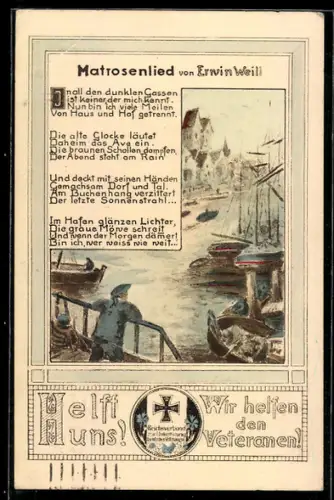 Matrosenlied von Erwin Weill
In all den dunklen Gassen
Ist keiner der mich kennt.
Nun bin ich viele Meilen
Von Haus und Hof getrennt.
Die alte Glocke läutet
Daheim das Ave ein.
Die braunen Schollen dampfen,
Der Abend steht am Rain
Und deckt mit seinen Händen
Gemachsam Dorf und Tal.
Am Buchenhang verzittert
Der letzte Sonnenstrahl...
Im Hafen glänzen Lichter,
Die graue Möwe schreit
Und wenn der Morgen dämert
Bin ich, wer weiss wie weit...
Helft uns!
Wir helfen den Veteranen!
Reichsverband